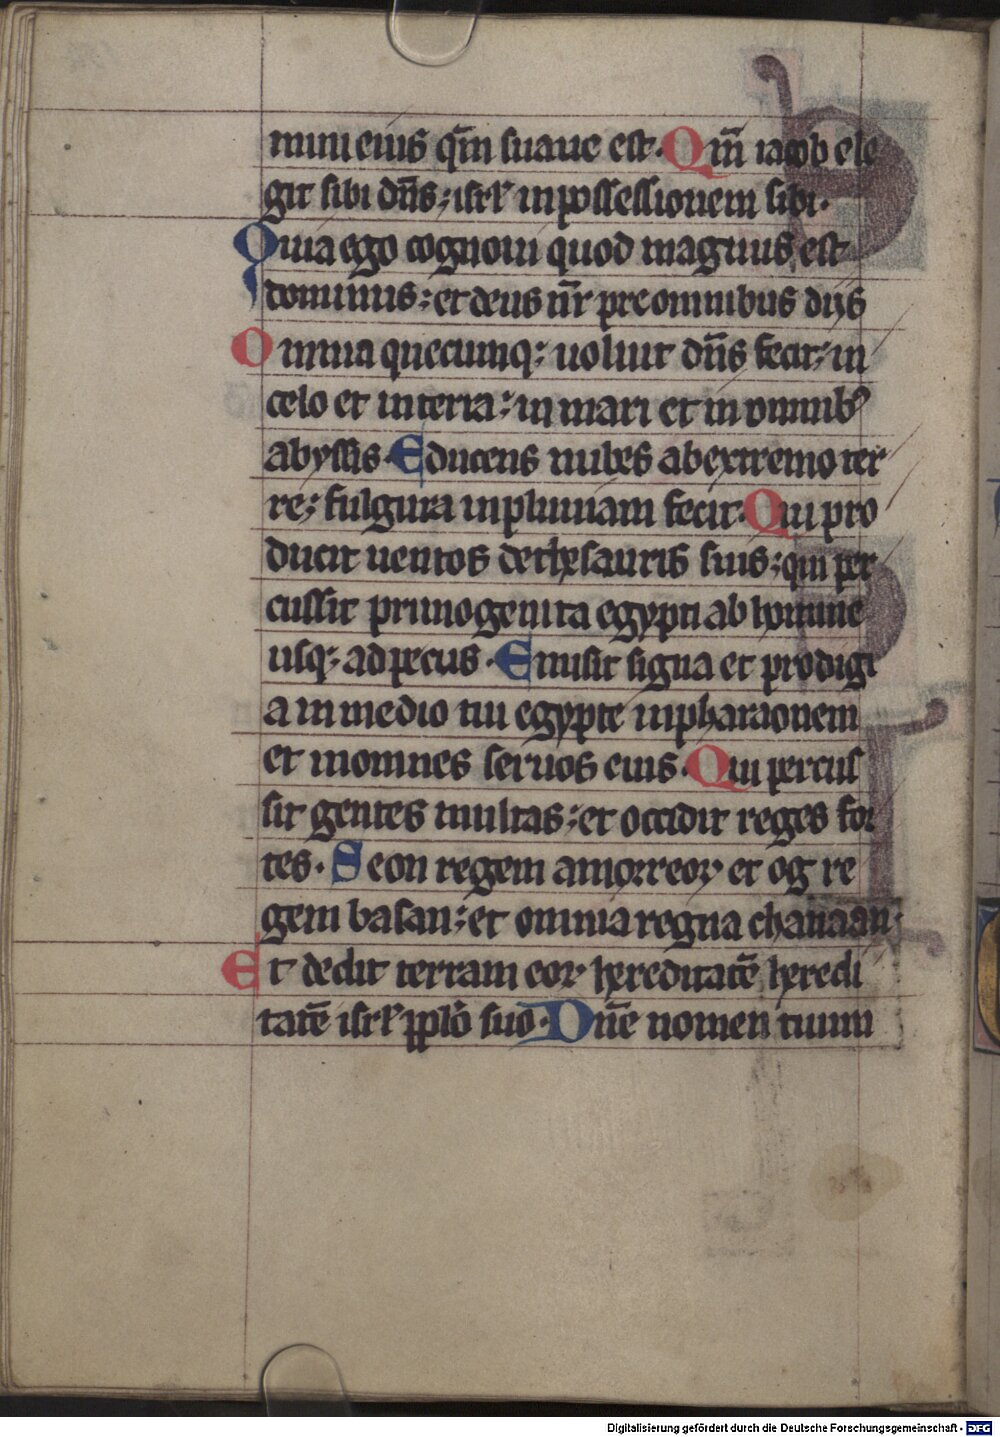 mini eius qm̄ suaue est. Qm̄ iacob ele
git sibi dn̄s: isrl̄ in possessionem sibi.
Quia ego cognoui quod magnus est
dominus: et deus nr̄ pre omnibus diis
Omnia quecumq: uoluit dn̄s fecit: in
celo et in terra: in mari et in omnibꝰ
abyssis. Educens nubes ab extremo ter
re: fulgura in pluuiam fecit. Qui pro
ducit uentos de thesauris suis: qui per
cussit primogenita egypti ab homine
usq: ad pecus. Emisit signa et prodigi
a in medio tui egypte in pharaonem
et in omnes seruos eius. Qui percus
sit gentes multas: et occidit reges for
tes. Seon regem amorreoꝝ et og re
gem basan: et omnia regna chanaan.
Et dedit terram eoꝝ hereditatē heredi
tatē isrl̄ ppl̄o suo. Dn̄e nomen tuum
Digitalisierung gefördert durch die Deutsche Forschungsgemeinschaft - DFG